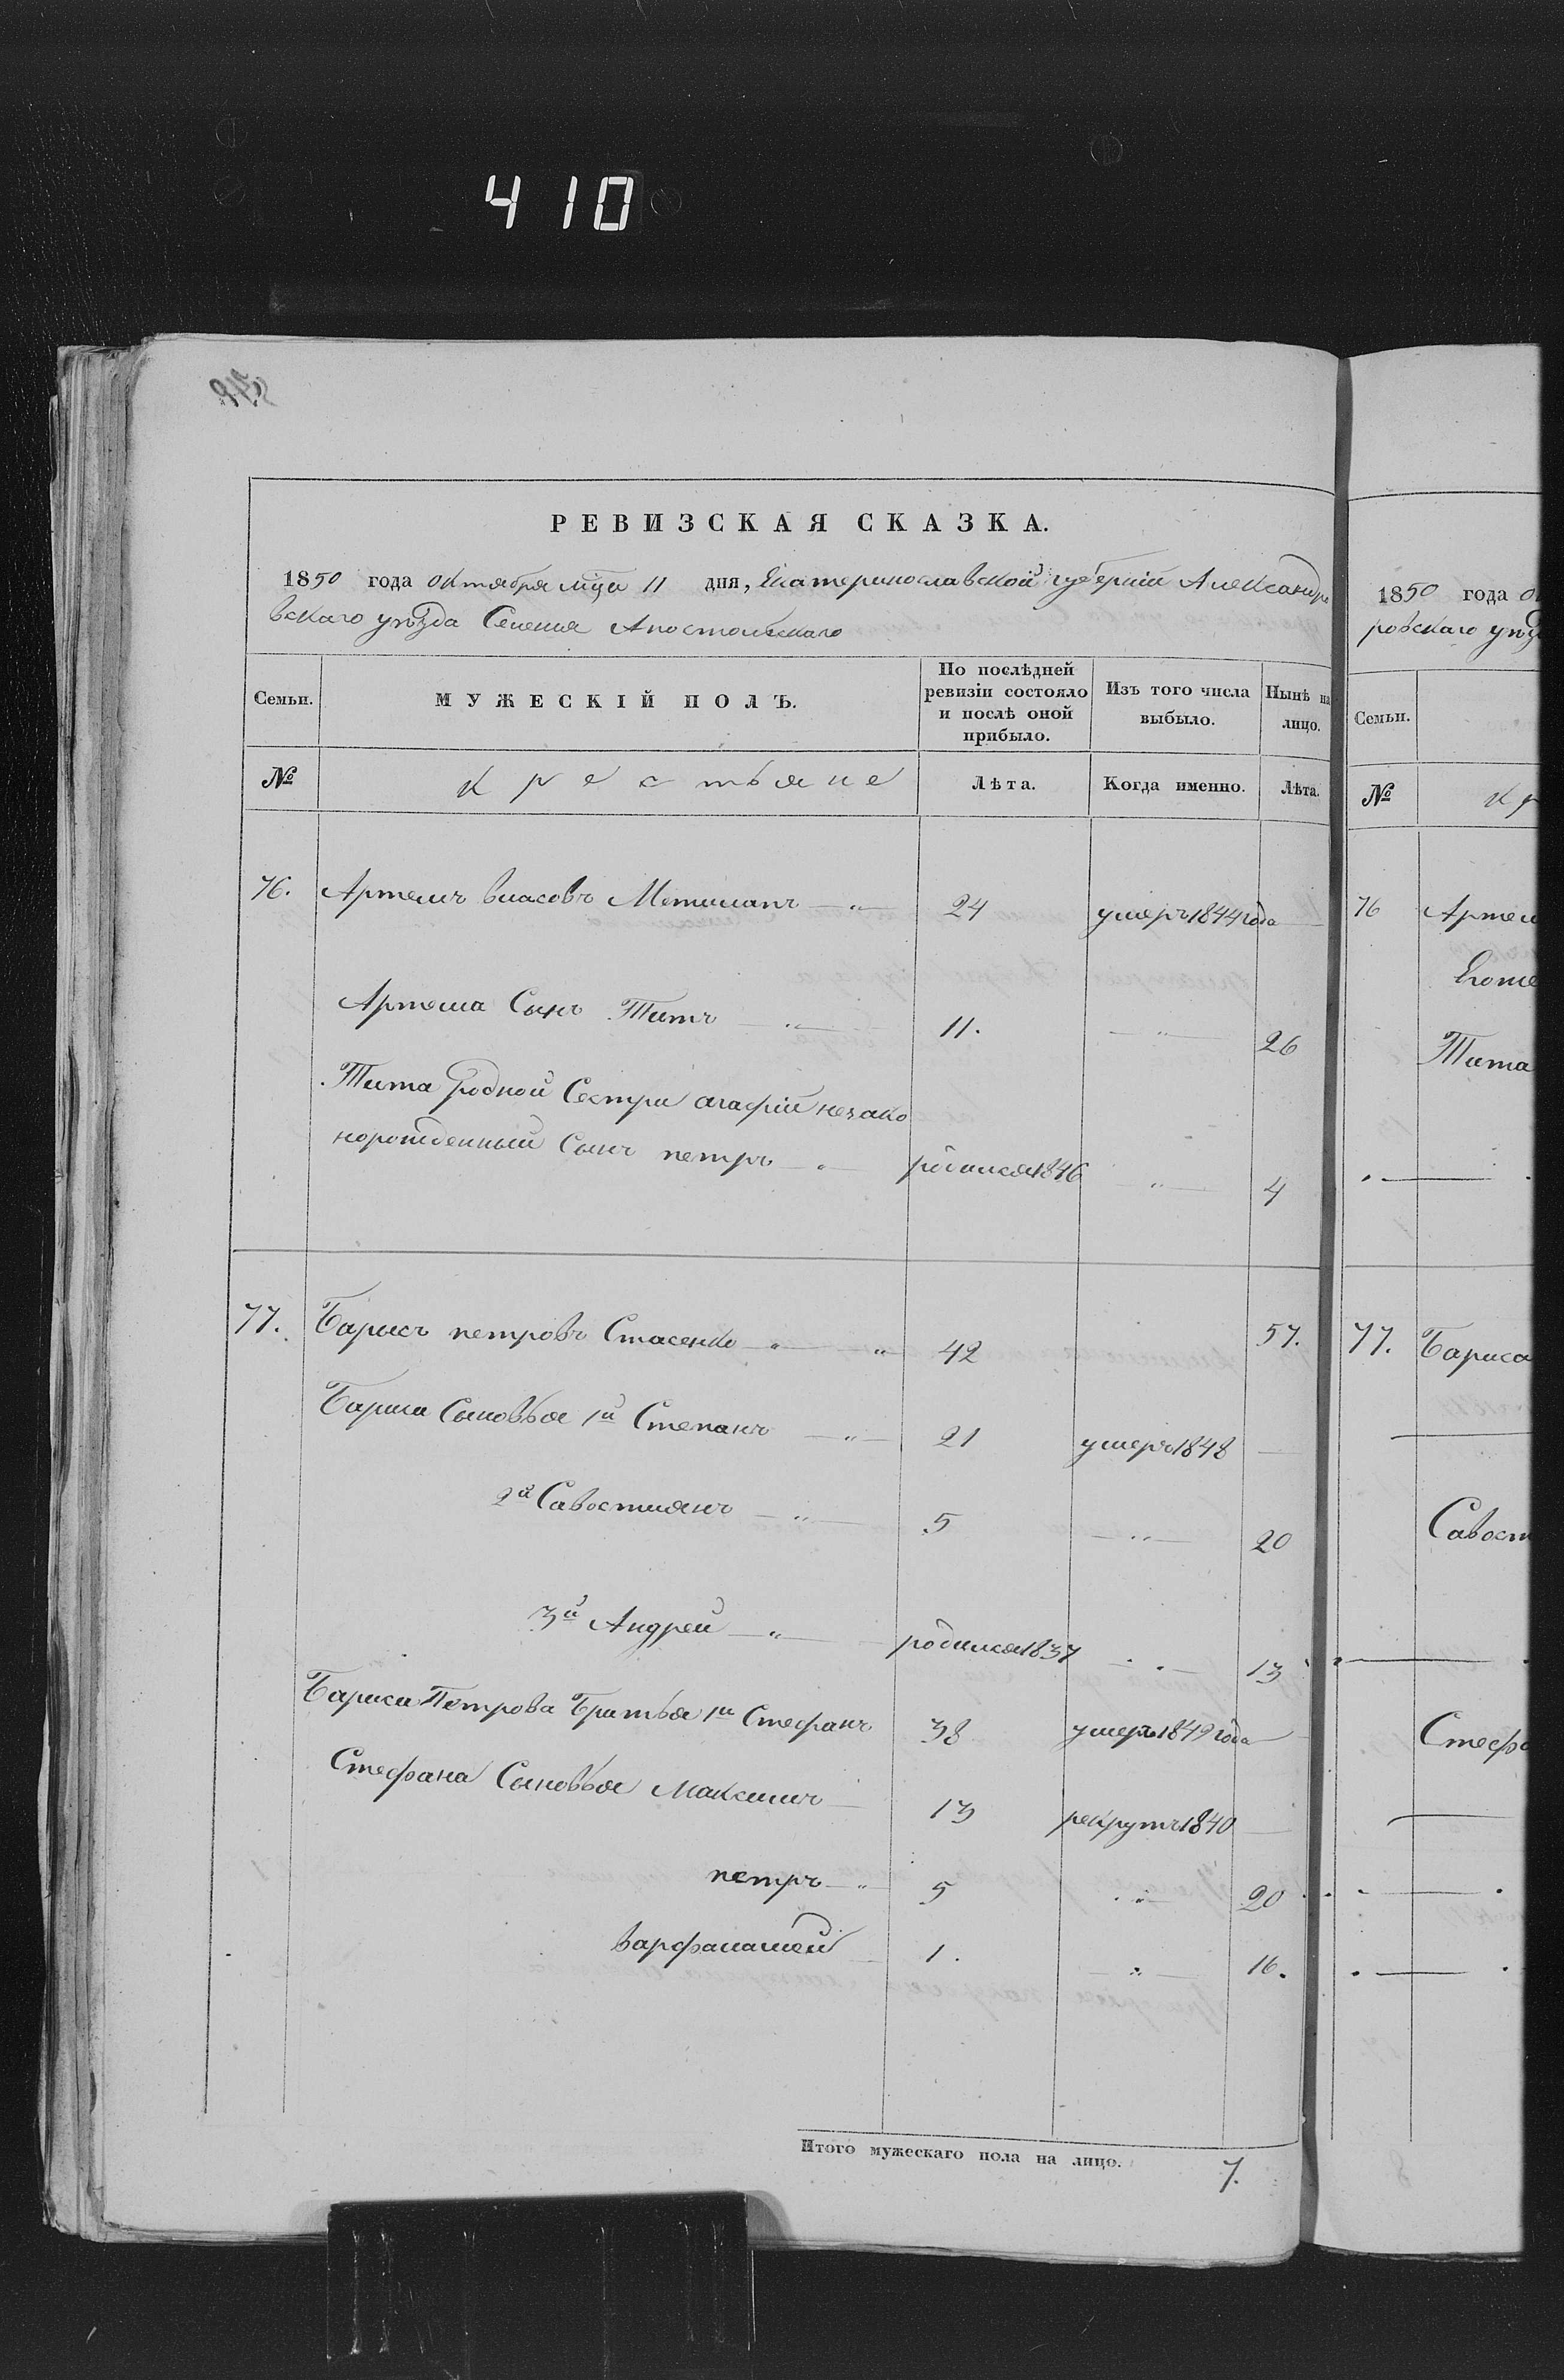 410
РЕВИЗСКАЯ СКАЗКА.
1850 года октября мца 11 дня, Екатеринославской губерніи Александро
вскаго уѣзда Селенія Апостольскаго
Семьи.
МУЖЕСКІЙ ПОЛЪ.
По послѣдней
ревизіи состояло
и послѣ оной
прибыло.
Изъ того числа
выбыло.
Нынѣ на
лицо.
№ крестьяне Лѣта. Когда именно. Лѣта.
76. Артемъ власовъ 24 умеръ 1844 года
Артема Сынъ Титъ 11. 26
Тита родной Сестри агафіи незако
норожденный Сынъ петръ родился 1846 4
77. Барисъ петровъ Стасенко 42 57.
Бариса Сыновья 1й Степанъ 21 умеръ 1848
2й Савостиянъ 5 20
3й Андрей родился 1837 13
Бариса Петрова Братья 1й Стефанъ 38 умеръ 1849 года
Стефана Сыновья Максимъ 13 рекрутъ 1840
петръ 5 20
варфаламей 1. 16.
Итого мужескаго пола на лицо. 7.
1850 года
ровскаго
Семьи.
№
76 Артем
Тита
77. Бариса
Савост
Стеф